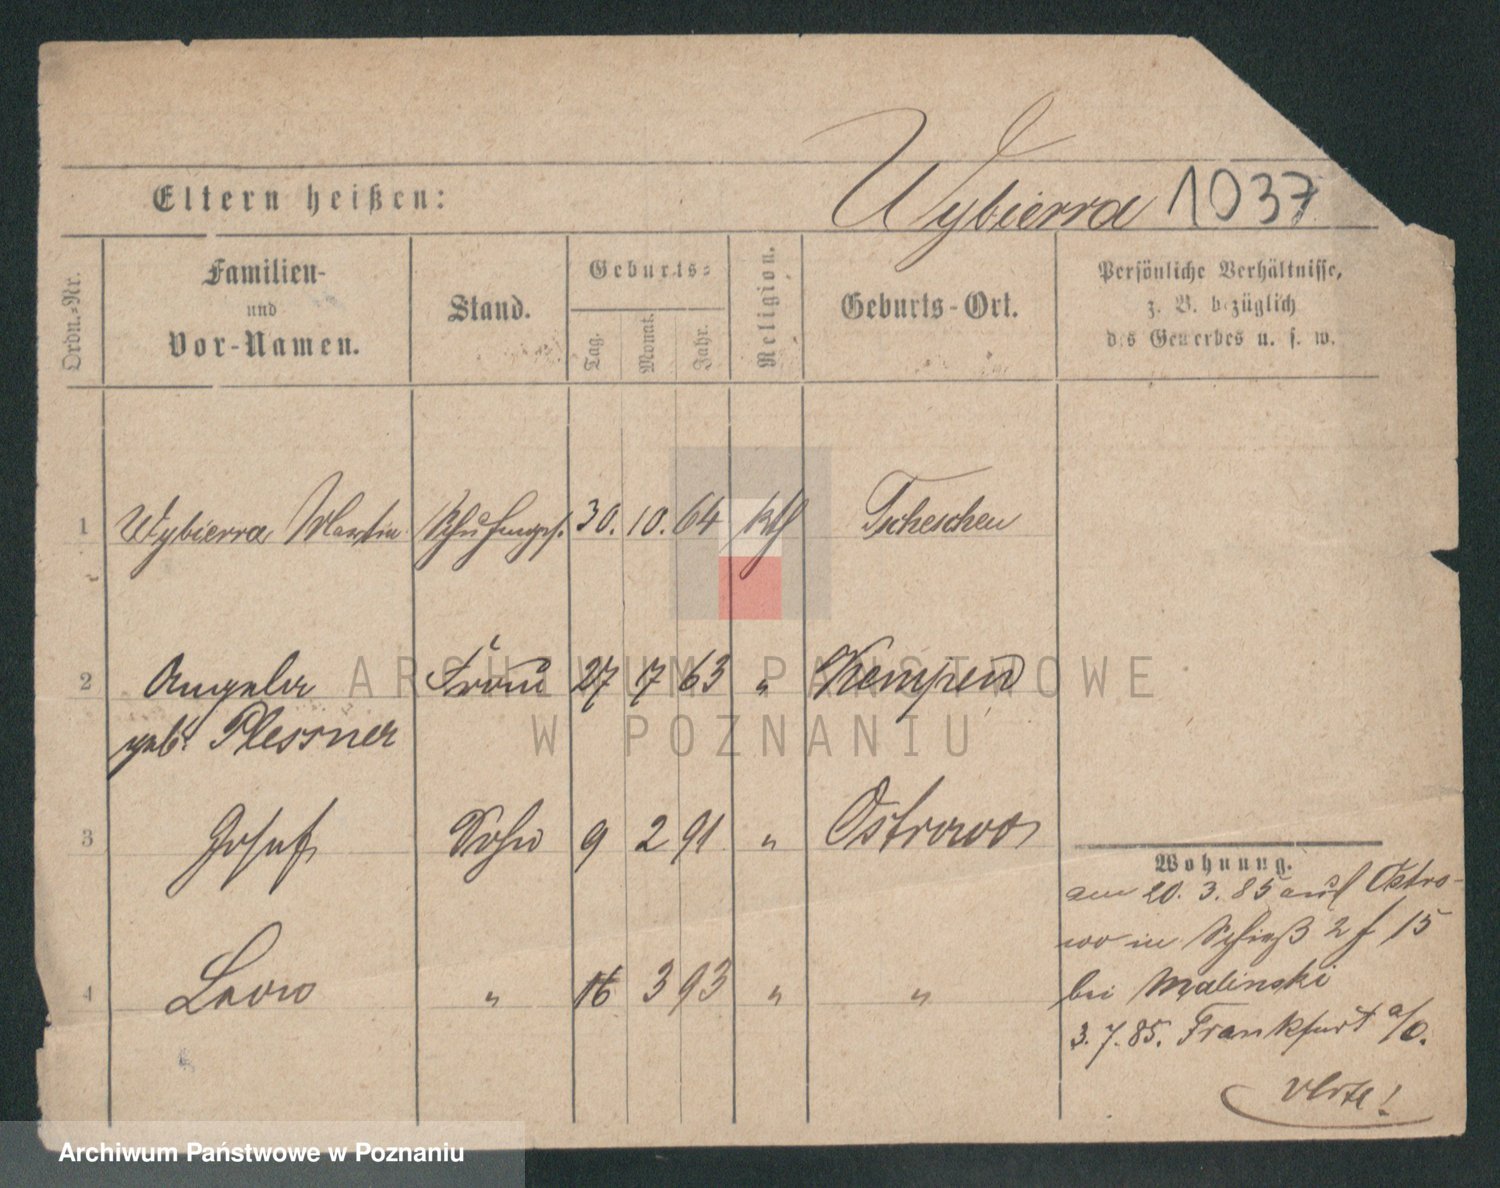 Wybierra 1037
Eltern heißen:
Ordn.-Nr.
Familien-
und
Vor-Namen.
Stand.
Geburts-
Tag.
Monat.
Jahr.
Religion.
Geburts-Ort.
Persönliche Verhältnisse,
z. B. bezüglich
des Gewerbes u. s. w.
1 Wybierra Martin Schuhmges. 30. 10. 64 kth Tscheschen
2 Angela Frau 27 7 63 " Kempen
geb. Plessner
3 Josef Sohn 9 2 91 " Ostrowo
4 Leow " 16 3 93 " "
Wohnung.
am 20. 3. 85 aus Ostro-
wo in Schieß 2 f 15
bei Malinski
3. 7. 85. Frankfurt a/O.
vlrte!
ARCHIWUM PAŃSTWOWE
W POZNANIU
Archiwum Państwowe w Poznaniu